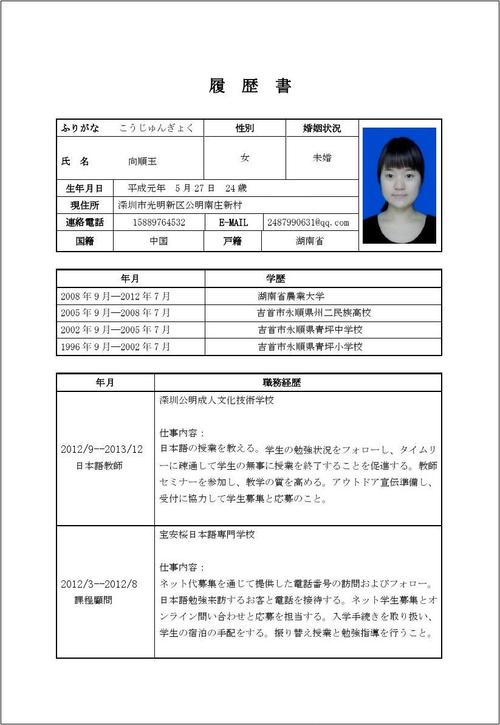 履 歴 書
ふりがな こうじゅんぎょく 性別 婚姻状況
氏 名 向順玉 女 未婚
生年月日 平成元年 5月27日 24歳
現住所 深圳市光明新区公明南庄新村
連絡電話 15889764532 E-MAIL 2487990631@qq.com
国籍 中国 戸籍 湖南省
年月 学歴
2008年9月—2012年7月 湖南省農業大学
2005年9月—2008年7月 吉首市永順県州二民族高校
2002年9月—2005年7月 吉首市永順県青坪中学校
1996年9月—2002年7月 吉首市永順県青坪小学校
年月 職務経歴
深圳公明成人文化技術学校
仕事内容：
2012/9--2013/12
日本語教師
日本語の授業を教える。学生の勉強状況をフォローし、タイムリ
ーに疎通して学生の無事に授業を終了することを促進する。教師
セミナーを参加し、教学の質を高める。アウトドア宣伝準備し、
受付に協力して学生募集と応募のこと。
宝安桜日本語専門学校
仕事内容：
2012/3--2012/8
課程顧問
ネット代募集を通じて提供した電話番号の訪問およびフォロー。
日本語勉強来訪するお客と電話を接待する。ネット学生募集とオ
ンライン問い合わせと応募を担当する。入学手続きを取り扱い、
学生の宿泊の手配をする。振り替え授業と勉強指導を行うこと。